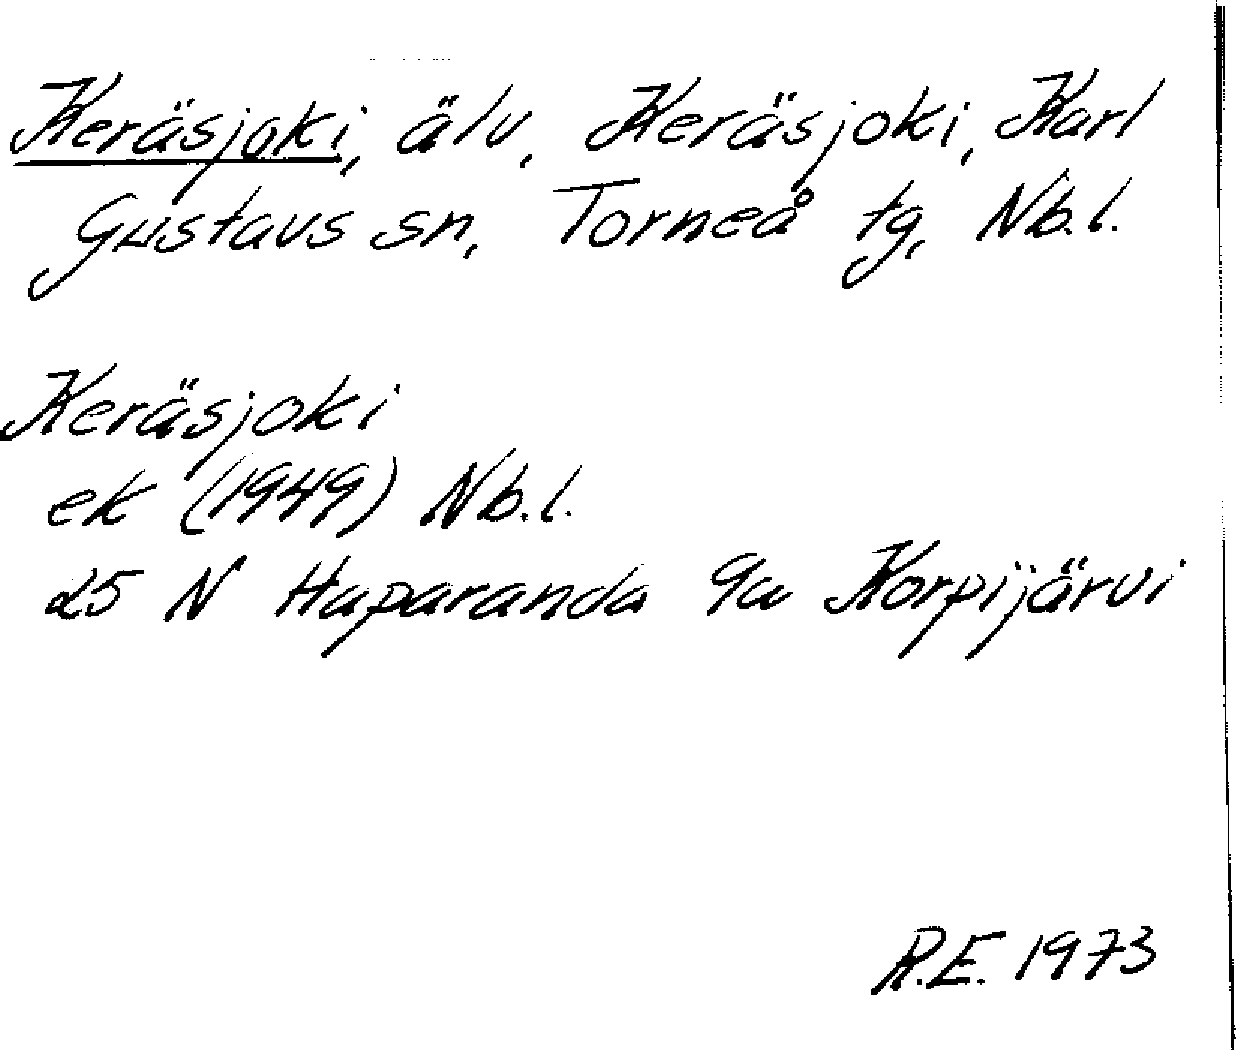 Keräsjoki, älv, Keräsjoki, Karl
Gustavs sn, Torneå tg, Nb.l.
Keräsjoki
ek (1949) Nb.l.
25 N Haparanda 9a Korpijärvi
R.E. 1973